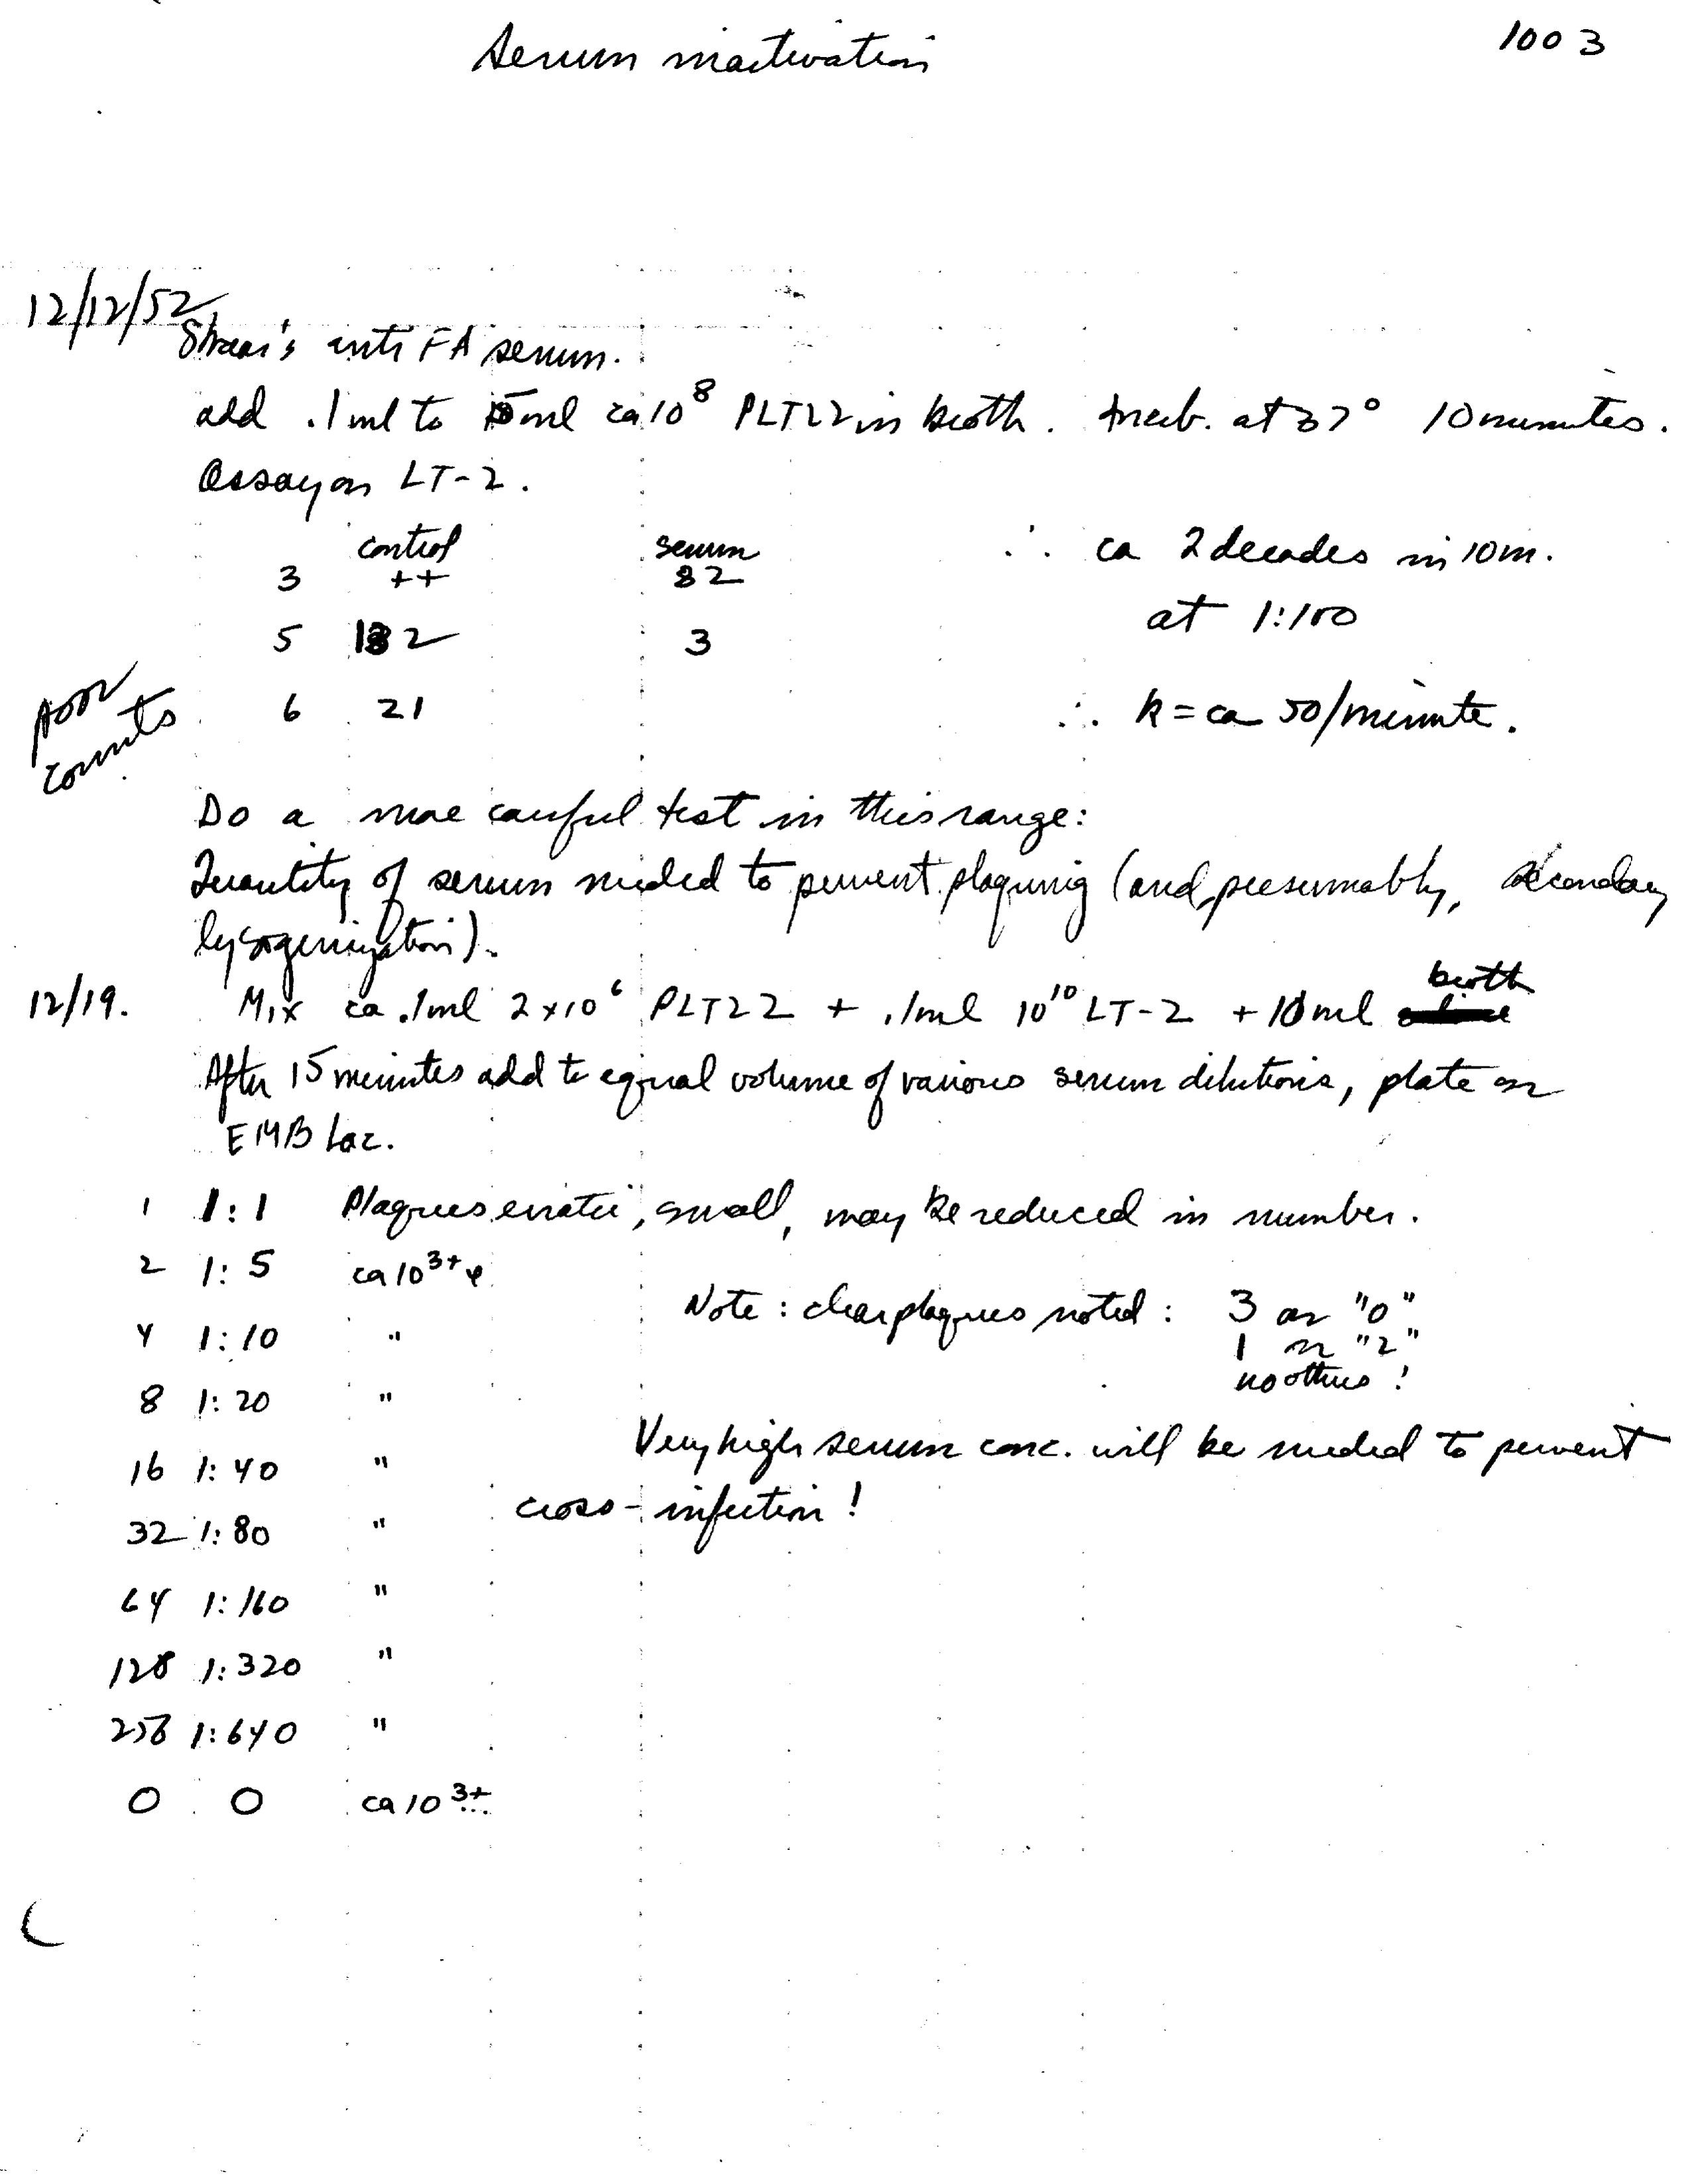 Serum inactivation
1003
12/12/52
anti FA serum.
add .1ml to 5ml ca 10^8 PLT22 in broth. Incub. at 37° 10 minutes.
Assay on LT-2.
control serum
3 ++ 82
5 132 3
6 21
poor counts
∴ ca 2 decades in 10m.
at 1:100
∴ k = ca 50/minute.
Do a more careful test in this range:
Quantity of serum needed to prevent plaquing (and, presumably, secondary
lysogenization).
12/19. Mix ca .1ml 2x10^6 PLT22 + .1ml 10^10 LT-2 + 10ml broth
After 15 minutes add to equal volume of various serum dilutions, plate on
EMB Lac.
1 1:1 Plaques erratic, small, may be reduced in number.
2 1:5 ca 10^3+
4 1:10 "
8 1:20 "
16 1:40 "
32 1:80 "
64 1:160 "
128 1:320 "
256 1:640 "
0 0 ca 10^3+
Note: clear plaques noted: 3 on "0"
1 on "2"
no others!
Very high serum conc. will be needed to prevent
cross-infection!